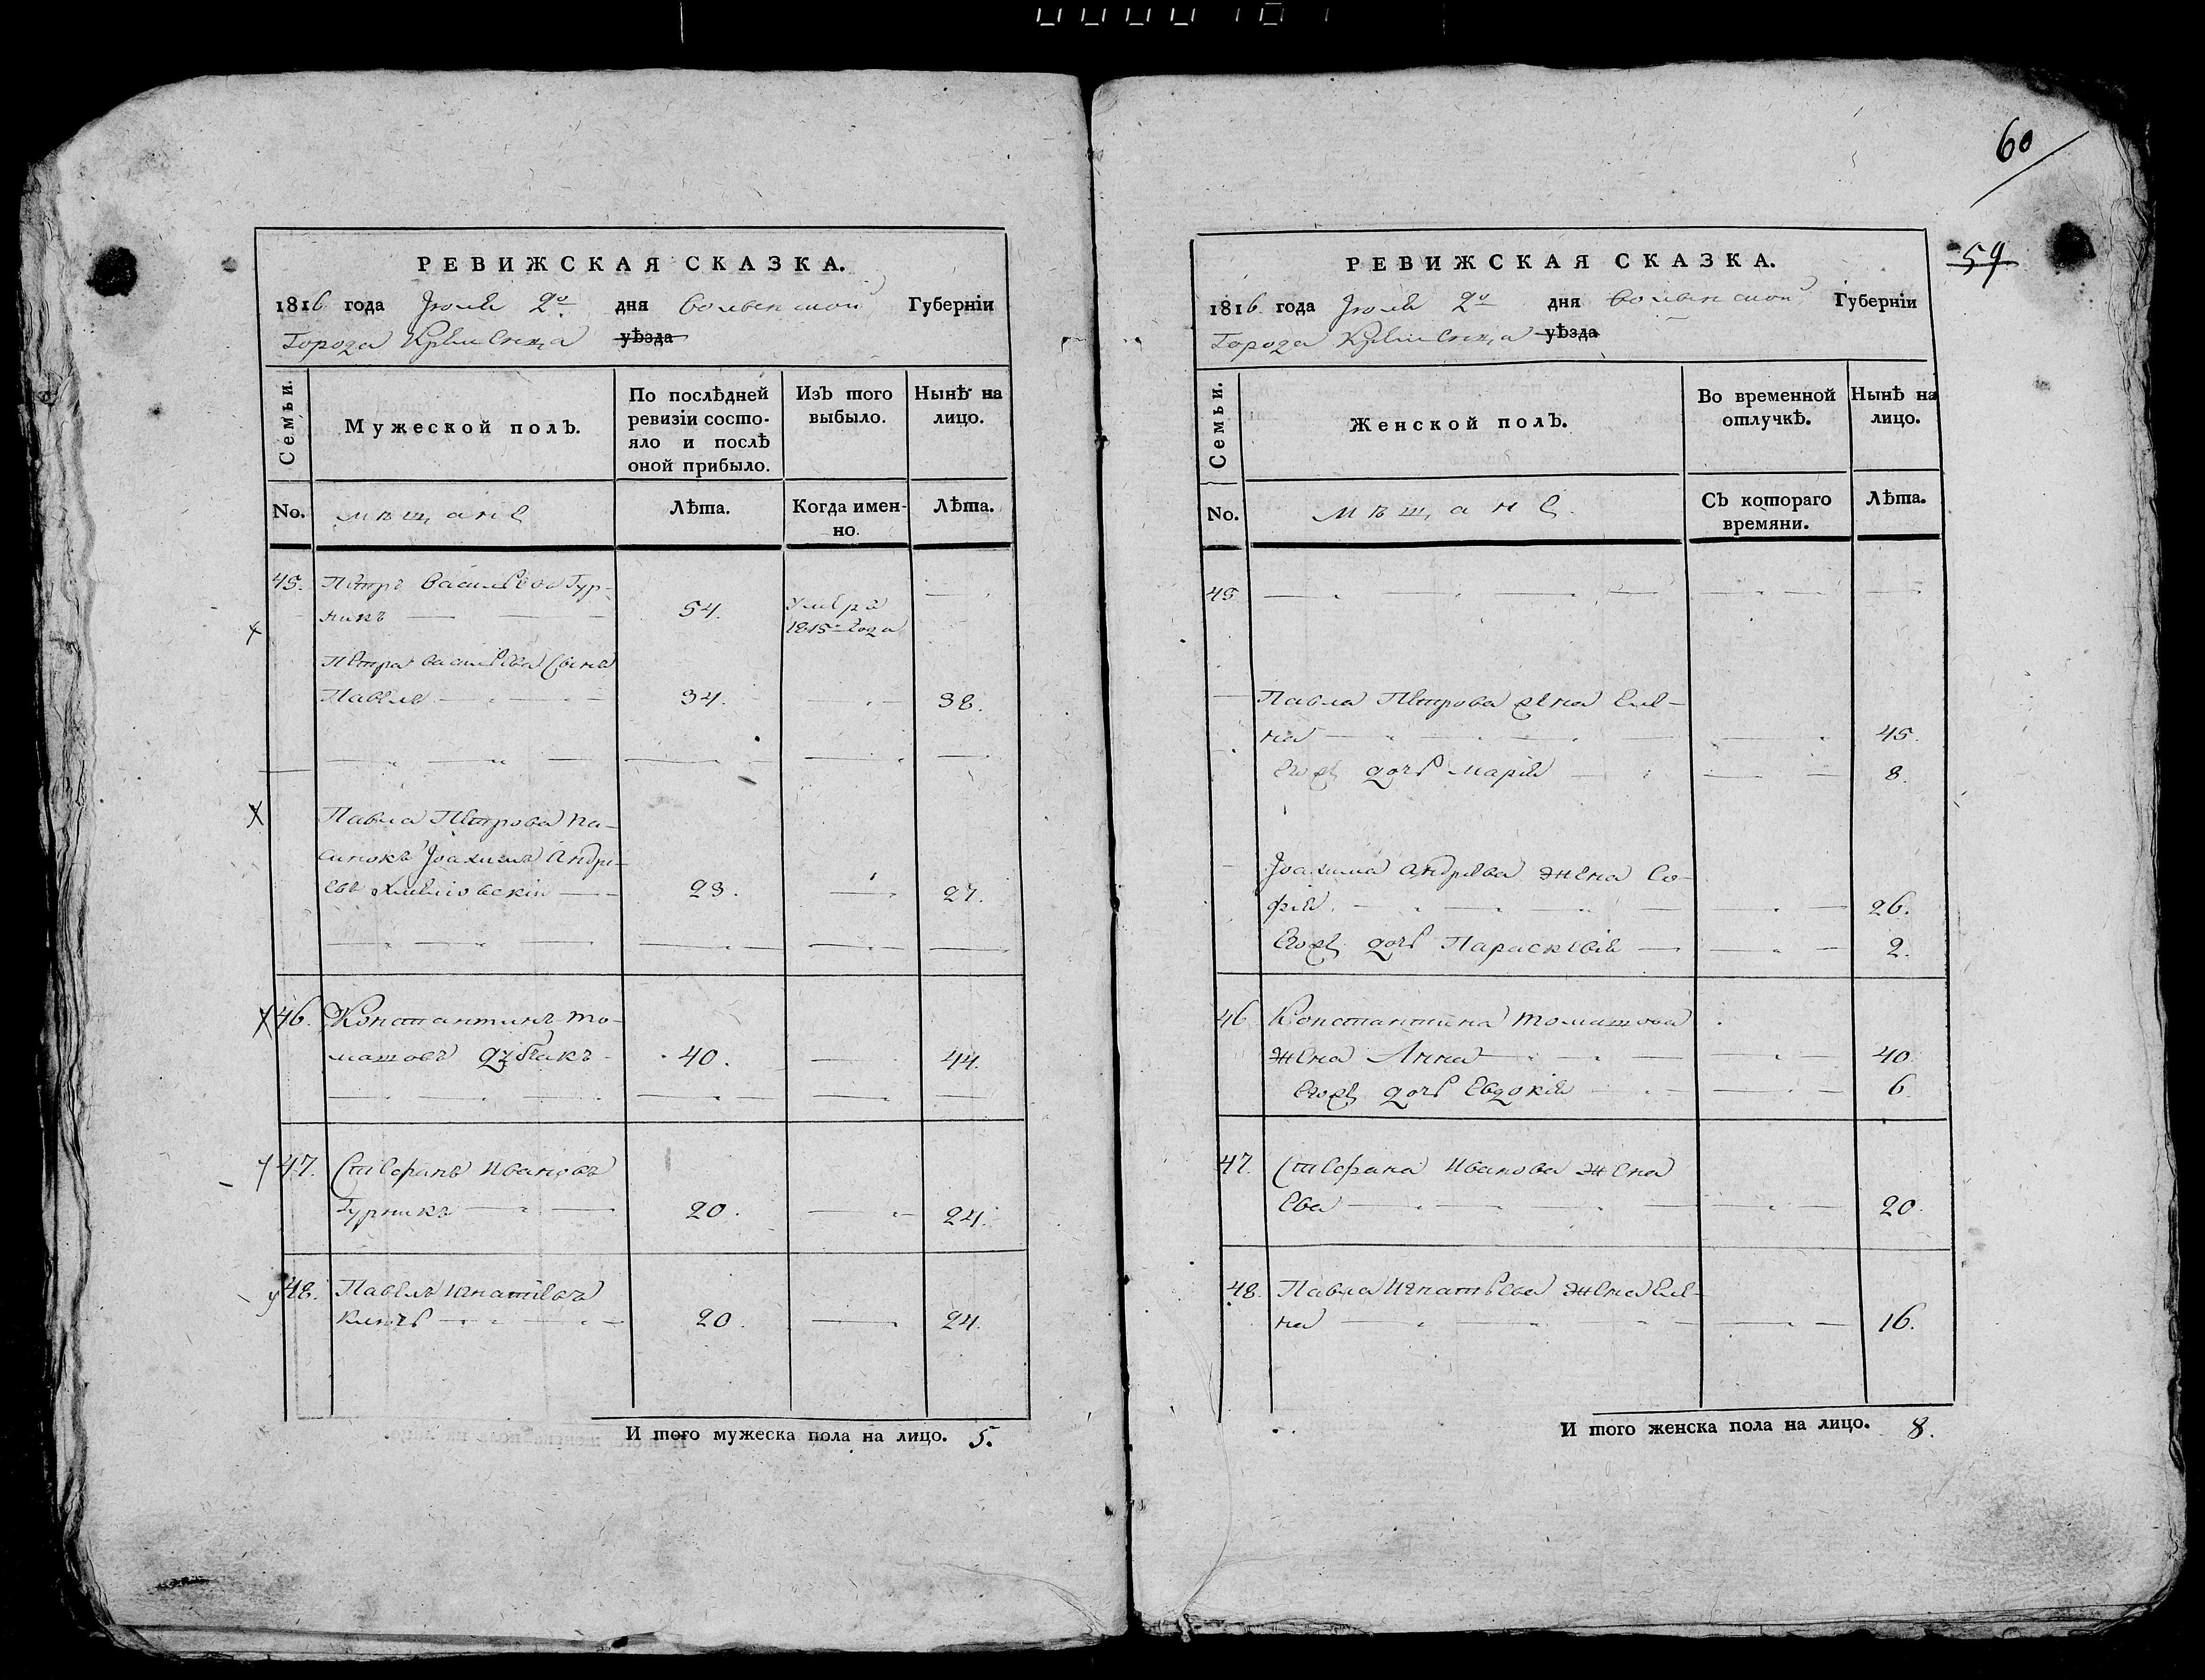 60
59
РЕВИЖСКАЯ СКАЗКА.
1816 года Іюля 2го дня Волынской Губерніи
Города Кременца уѣзда
Семьи.
Мужеской полъ.
По послѣдней ревизіи состояло и послѣ оной прибыло.
Изъ того выбыло.
Нынѣ на лицо.
No.
мѣщане
Лѣта.
Когда именно.
Лѣта.
45. Петръ Васильевъ Гур-
никъ 54. Умеръ 1815го года
Петра Васильева сынъ
Павелъ 34. 38.
Павла Петрова па-
синокъ Іоахимъ Андре-
евъ 23. 27.
46. Константинъ То-
машовъ 40. 44.
47. Стефанъ Ивановъ
Гурникъ 20. 24.
48. Павелъ Игнатіевъ
20. 24.
И того мужеска пола на лицо. 5.
РЕВИЖСКАЯ СКАЗКА.
1816 года Іюля 2го дня Волынской Губерніи
Города Кременца уѣзда
Семьи.
Женской полъ.
Во временной отлучкѣ.
Нынѣ на лицо.
No.
мѣщане.
Съ котораго времяни.
Лѣта.
45
Павла Петрова жена Еле-
на 45.
Егожъ дочь Марія 8.
Іоахима Андреева жена Со-
фія 26.
Егожъ дочь Параскевія 2.
46 Константина Томашова
жена Анна 40
Егожъ дочь Евдокія 6.
47. Стефана Иванова жена
Ева 20.
48. Павла Игнатьева жена Еле-
на 16.
И того женска пола на лицо. 8.